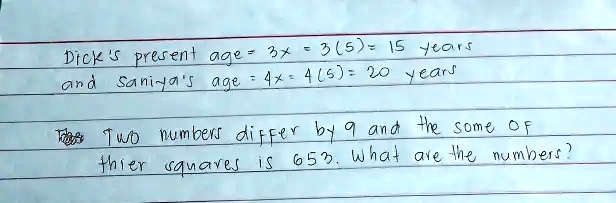 Dick's present age = 3x = 3(5) = 15 years
and Saniya's age = 4x = 4(5) = 20 years
Two numbers differ by 9 and the some of
thier squares is 653. What are the numbers?